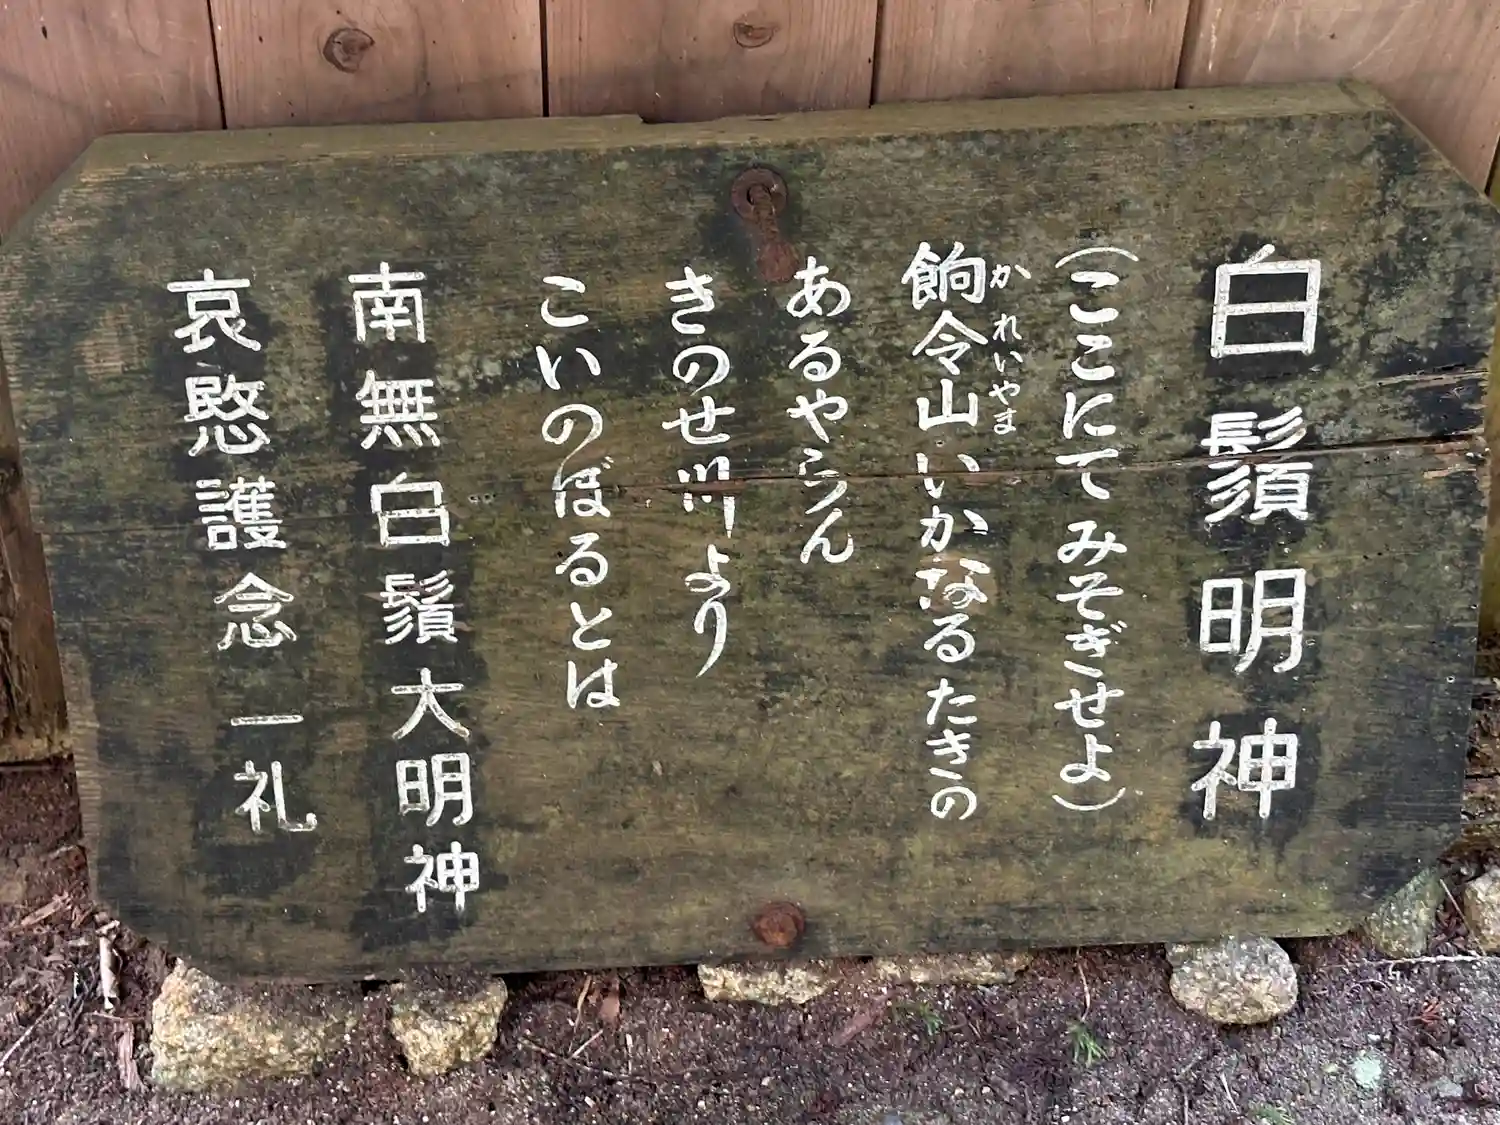 白鬚明神
(ここにてみそぎせよ)
餉令山いかなるたきの
かれいやま
あるやらん
きのせ川より
こいのぼるとは
南無白鬚大明神
哀愍護念一礼